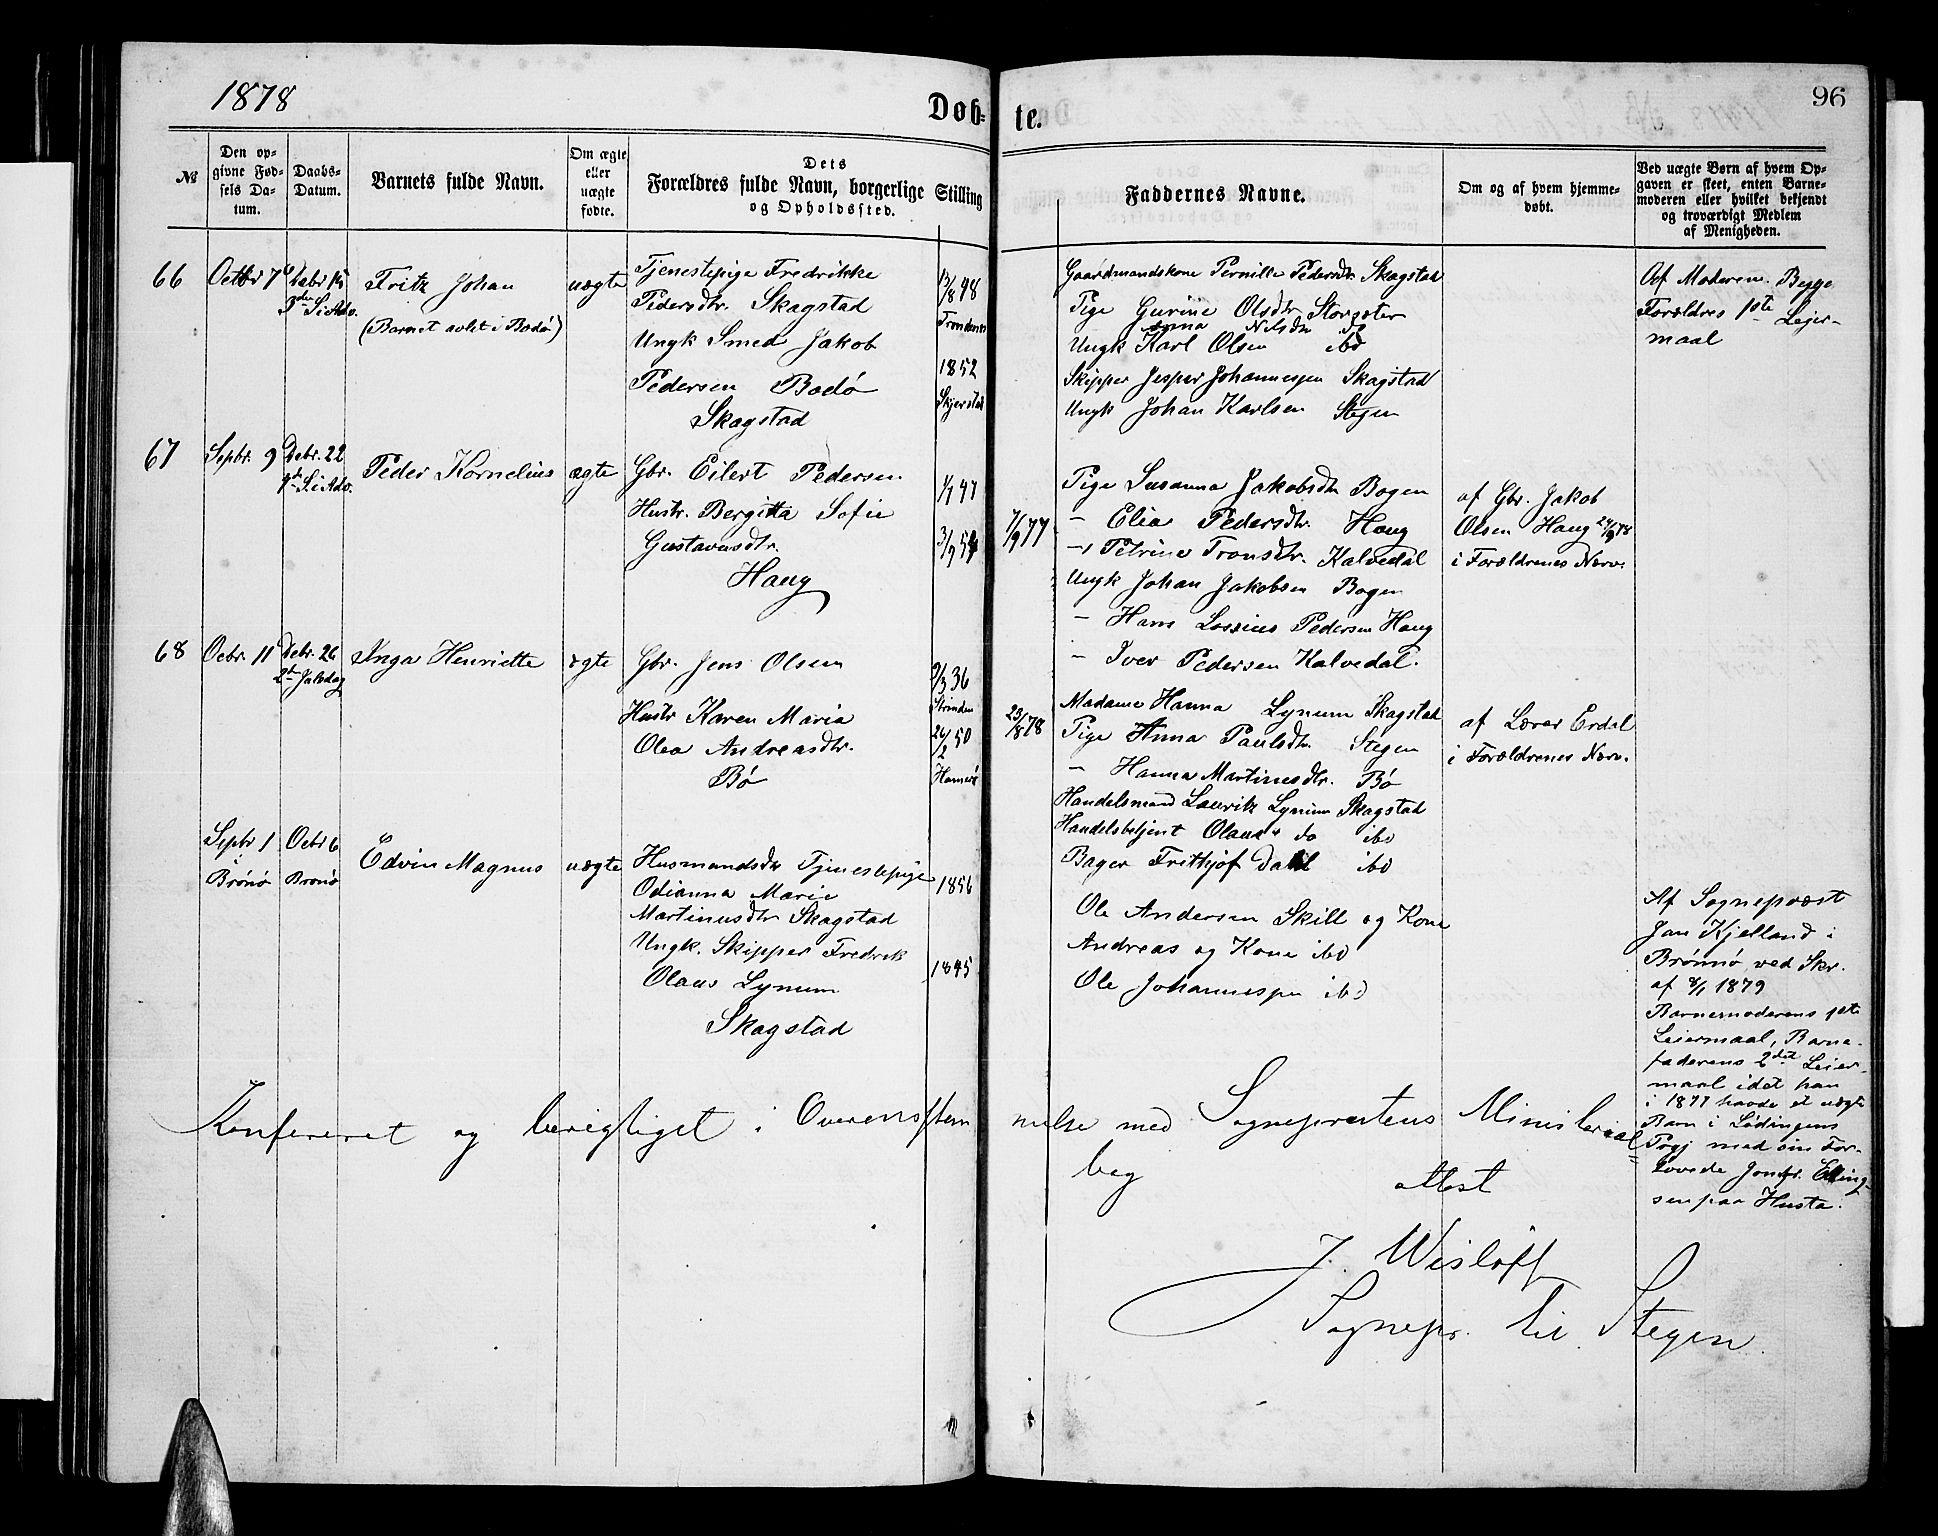 1878
Døb-
te.
96
№
Den op-
givne Fød-
sels Da-
tum.
Daabs-
Datum.
Barnets fulde Navn.
Om ægte
eller
uægte
fødte.
Dets
Forældres fulde Navn, borgerlige Stilling
og Opholdssted.
Faddernes Navne.
Om og af hvem hjemme-
døbt.
Ved uægte Børn af hvem Op-
gaven er skeet, enten Barne-
moderen eller hvilket bekjendt
og troværdigt Medlem
af Menigheden.
66
Octbr 7
Decbr 15
3die S. i Adv.
Fritz Johan
(Barnet avlet i Bodø)
uægte
Tjenestepige Fredrikke
Pedersdtr. Skagstad
Ungk Smed Jakob
Pedersen Bodø
Skagstad
13/8 48
Trondenes
1852
Skjerstad
Gaardmandskone Pernille Pedersdtr Skagstad
Pige Gurine Olsdtr Storsæter
Anna Nilsdtr do
Ungk Karl Olsen ibd
Skipper Jesper Johannessen Skagstad
Ungk Johan Karlsen Stegen
Af Moderen. Begge
Forældres 1ste Leier-
maal
67
Sepbr. 9
Debr. 22
4de S. i Adv.
Peder Kornelius
ægte
Gbr. Eilert Pedersen
Hustr. Bergitta Sofie
Gustavusdtr.
Haug
1/7 47
3/9 54
7/9 77
Pige Susanna Jakobsdtr Bogen
- Elia Pedersdtr. Haug
- Petrine Tronsdtr. Kalvedal
Ungk Johan Jakobsen Bogen
- Hans Lossius Pedersen Haug
- Iver Pedersen Kalvedal.
af Gbr. Jakob
Olsen Haug 24/9 78
i Forældrenes Nærv.
68
Ocbr. 11
Debr. 26
2den Juledag
Inga Henriette
ægte
Gbr. Jens Olsen
Hustr Karen Maria
Olea Andreasdtr.
Bø
2/3 36
Strinden
26/2 50
Hamerø
23/8 78
Madame Hanna Lynum Skagstad
Pige Anna Paulsdtr. Stegen
- Hanna Martinusdtr. Bø
Handelsmand Lauritz Lynum Skagstad
Handelsbetjent Olaus do ibd
Bager Frithjof Dahl ibd
af Lærer Erdal
i Forældrenes Nærv.
Sepbr 1
Brønø
Octbr 6
Brønø
Edvin Magnus
uægte
Husmandsdtr Tjenestepige
Odianna Marie
Martinusdtr Skagstad
Ungk. Skipper Fredrik
Olaus Lynum
Skagstad
1856
1845
Ole Andersen Skill og Kone
Andreas og Kone ibd
Ole Johannessen ibd
Af Sogneprest
Jan Kjelland i
Brønnø ved Skr.
af 8/1 1879
Barnemoderens 1ste
Leiermaal, Barne-
faderens 2det Leier-
maal idet han
i 1877 havde et uægte
Barn i Lødingens
Pgj med sin For-
lovede Jomfr. Elling-
sen paa Husta.
Konfereret og berigtiget i Overensstem
melse med Sogneprestens Ministerial-
bog
attest
J. Wisløff
Sognepr. til Stegen.